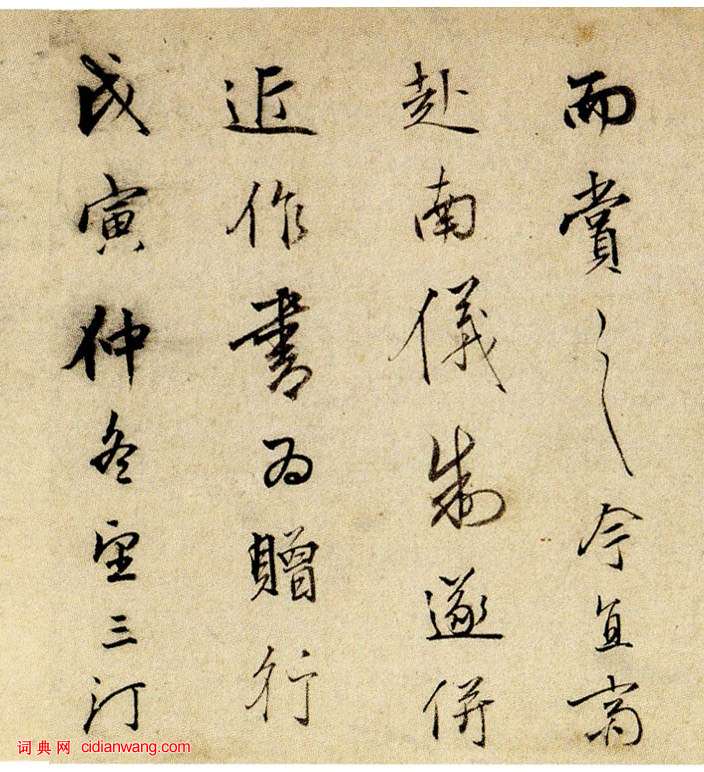 而賞之今直斋
赴南儀制遂併
近作書為贈行
戊寅仲冬望三汀
词典网 cidianwang.com